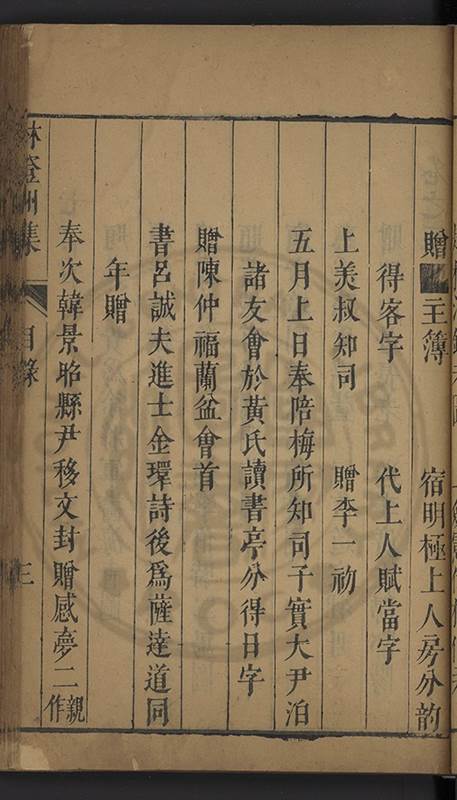 贈 主簿　宿明極上人房分韵
得客字　代上人賦當字
上美叔知司　贈李一初
五月上日奉陪梅所知司子實大尹洎
諸友會於黃氏讀書亭分得日字
贈陳仲福蘭盆會首
書呂誠夫進士金環詩後爲薩達道同
年贈
奉次韓景昭縣尹移文封贈感夢二親作
林登州集　目錄　三